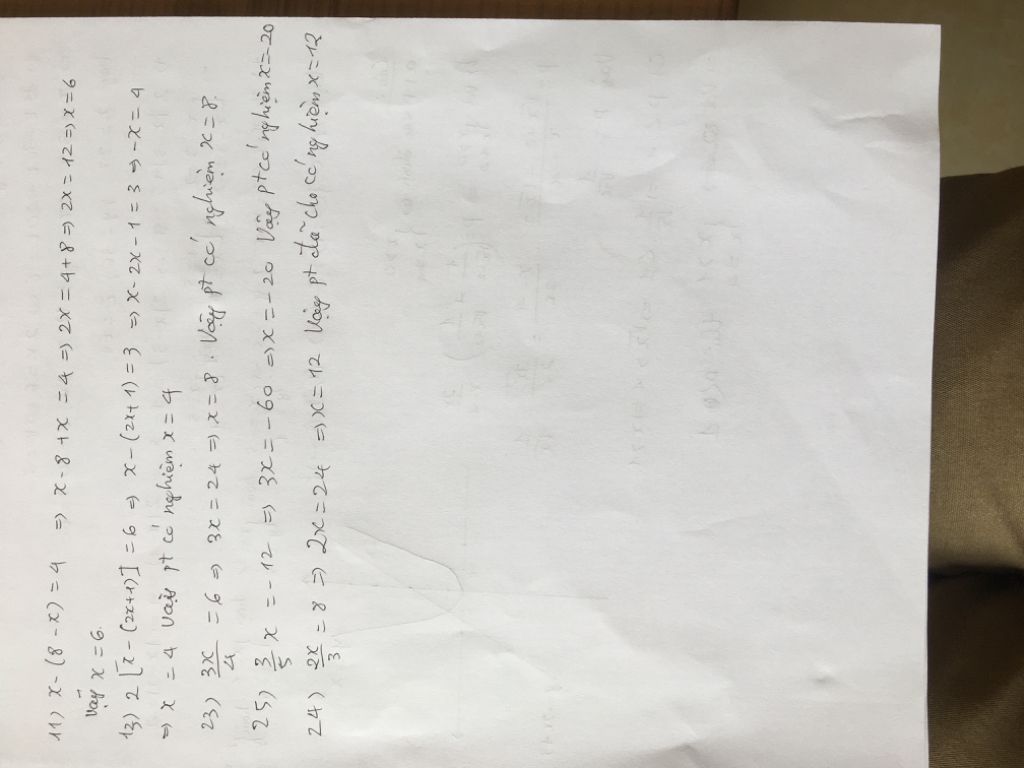 11) x - (8 - x) = 4 => x - 8 + x = 4 => 2x = 4 + 8 => 2x = 12 => x = 6
Vậy x = 6.
13) 2 [x - (2x+1)] = 6 => x - (2x+1) = 3 => x - 2x - 1 = 3 => -x = 4
=> x = 4 Vậy pt có nghiệm x = 4
23) 3x/4 = 6 => 3x = 24 => x = 8. Vậy pt có nghiệm x = 8.
25) 3/5 x = -12 => 3x = -60 => x = -20 Vậy pt có nghiệm x = -20
24) 2x/3 = 8 => 2x = 24 => x = 12 Vậy pt đã cho có nghiệm x = 12